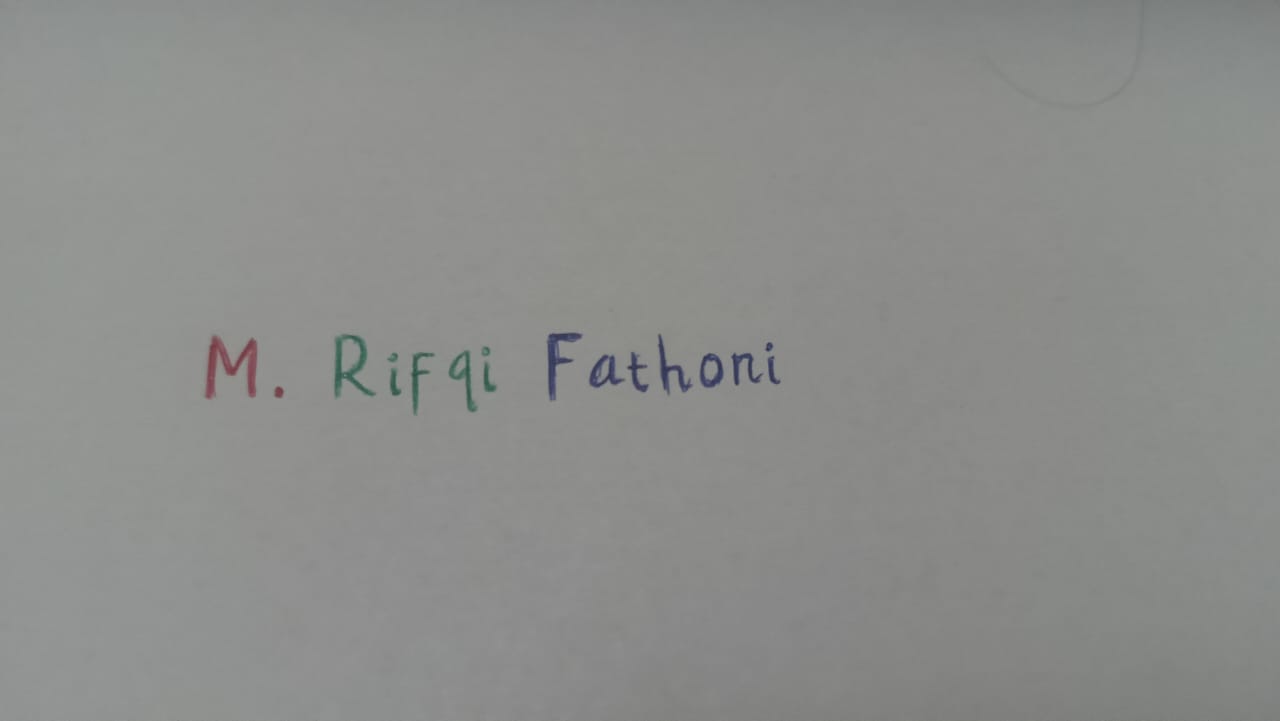 M. Rifqi Fathoni